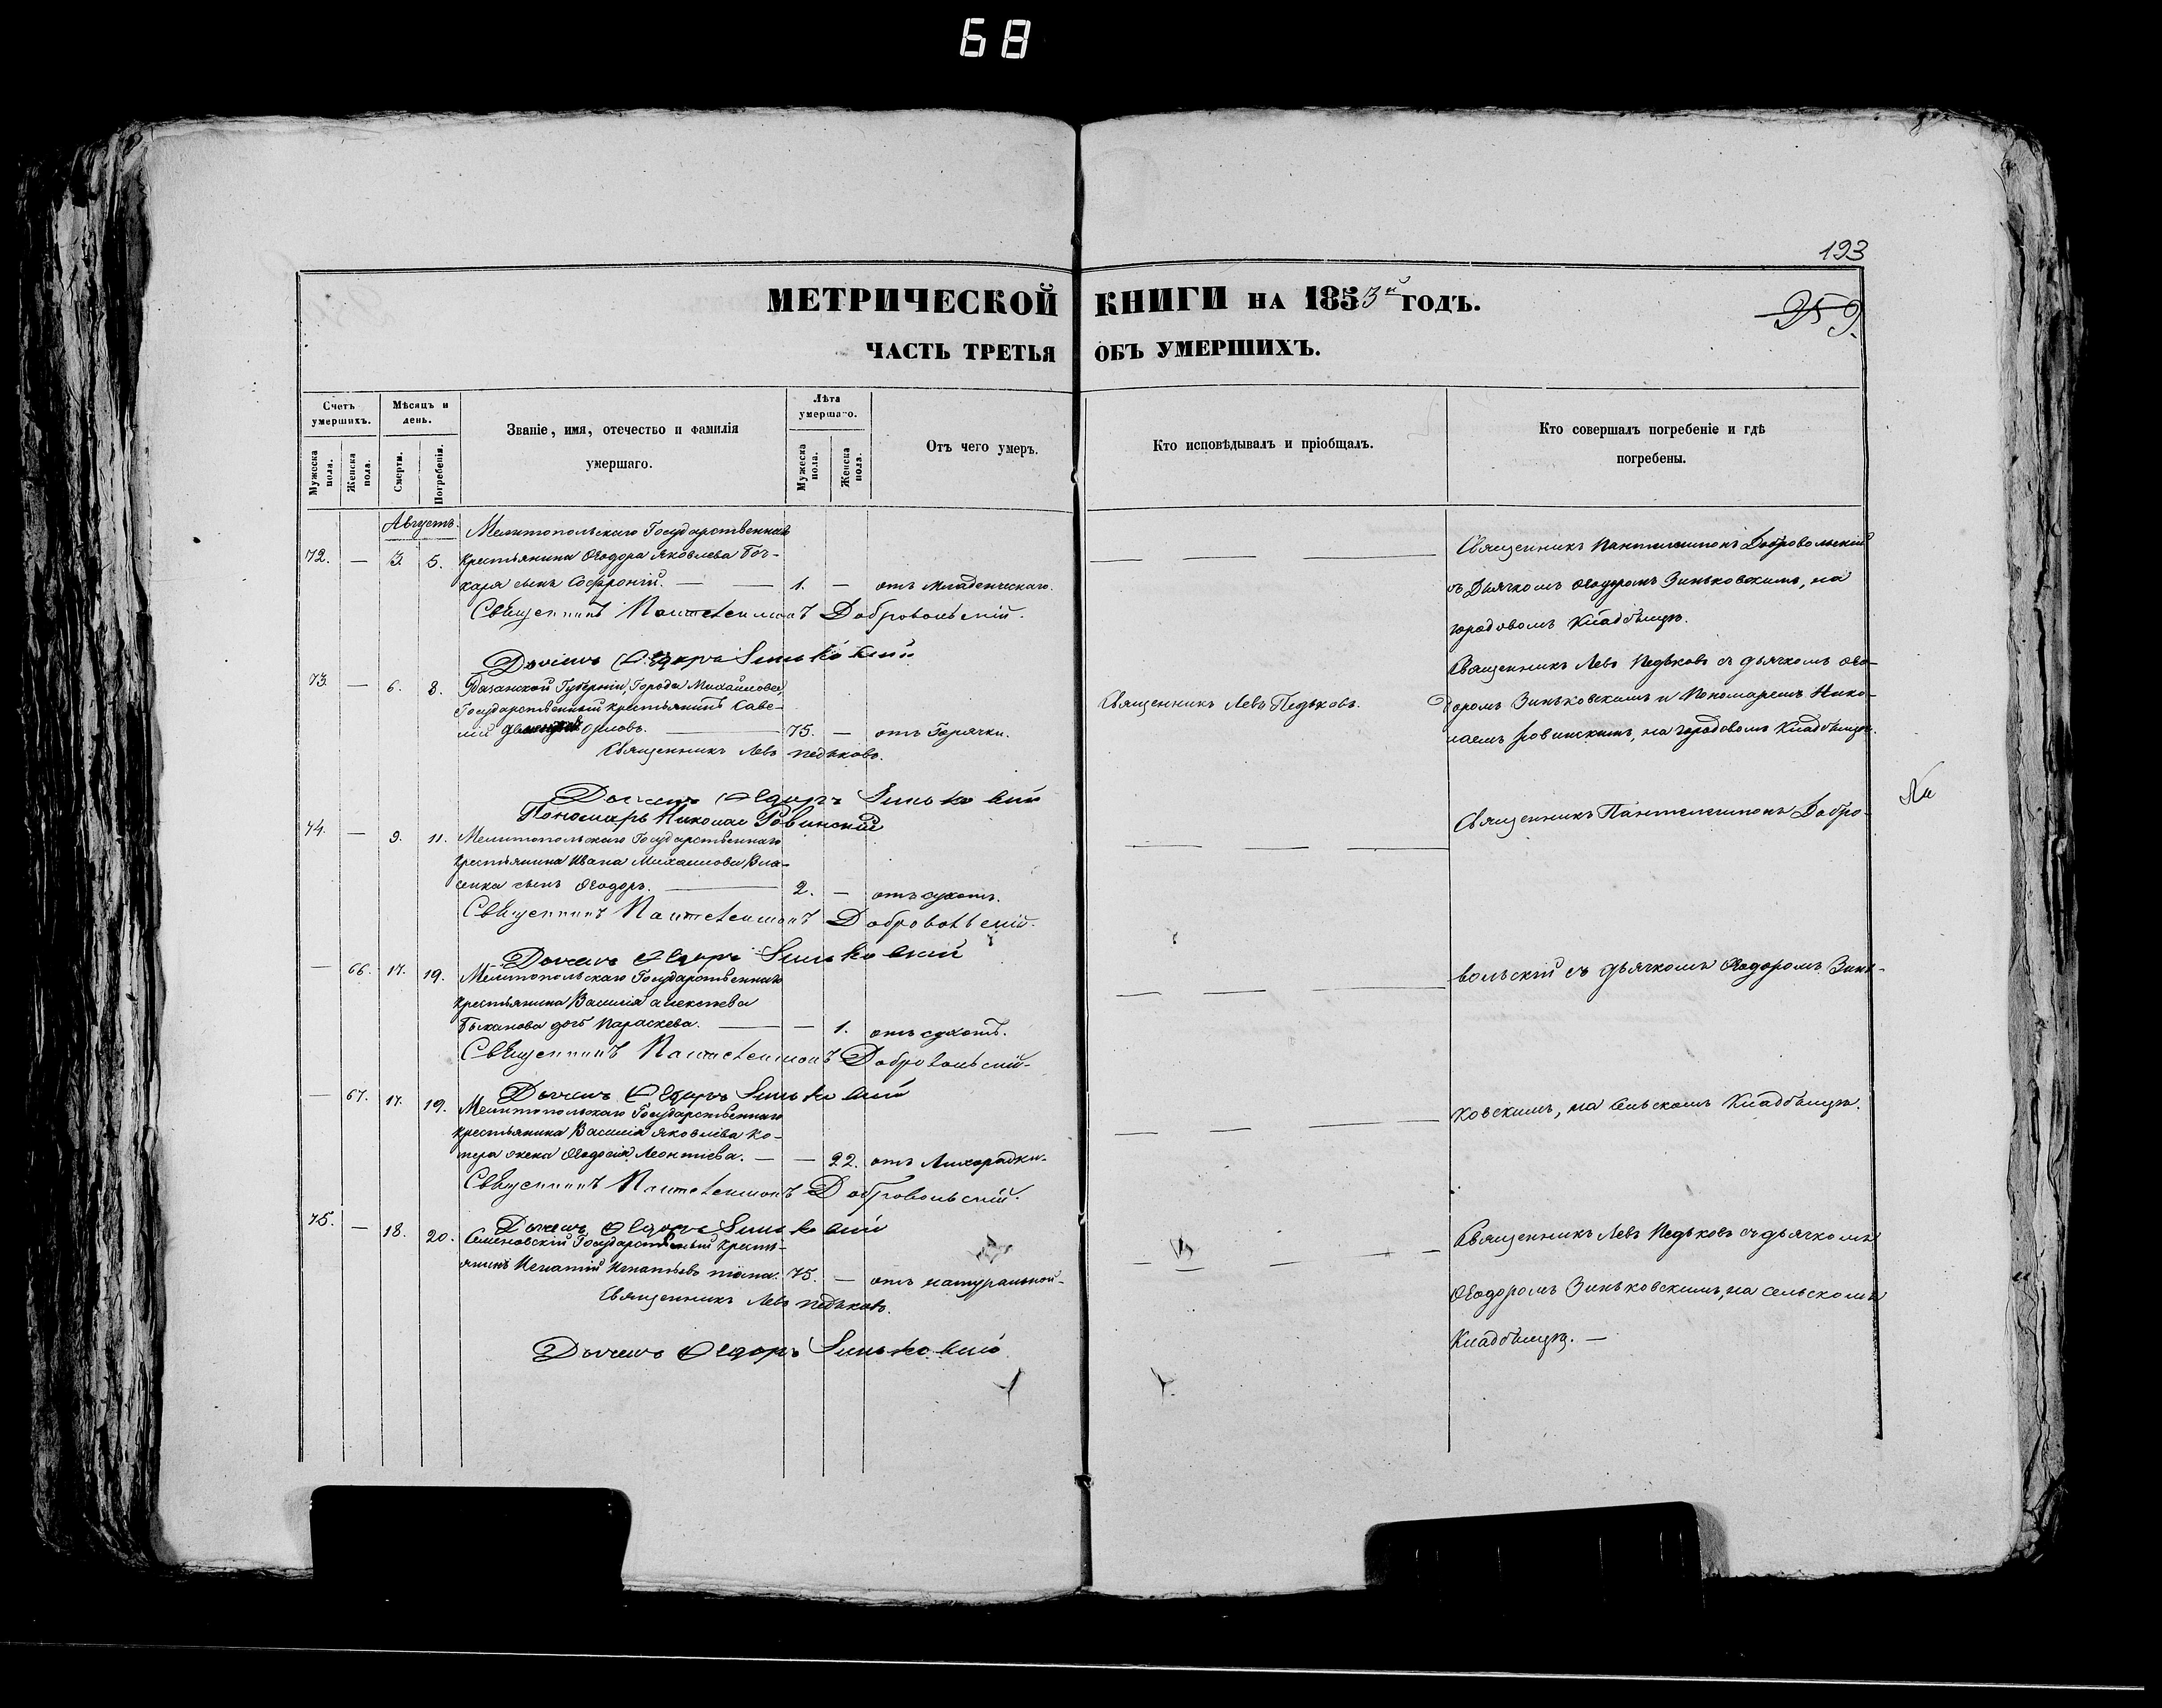 68
193
МЕТРИЧЕСКОЙ КНИГИ НА 1853й ГОДЪ.
259.
ЧАСТЬ ТРЕТЬЯ ОБЪ УМЕРШИХЪ.
Счетъ умершихъ.
Мужеска пола.
Женска пола.
Мѣсяцъ и день.
Смерти.
Погребенія.
Званіе, имя, отечество и фамилія
умершаго.
Лѣта умершаго.
Мужеска пола.
Женска пола.
Отъ чего умеръ.
Кто исповѣдывалъ и пріобщалъ.
Кто совершалъ погребеніе и гдѣ
погребены.
Августъ.
Мелитопольскаго Государственнаго
72. — 3. 5. крестьянина Ѳеодора Яковлева
сынъ Софроній. — — 1. — отъ младенческаго.
Священникъ Пантелеимонъ Добровольскій.
Дьячекъ Ѳедоръ Зиньковскій
Священникъ Пантелеимонъ Добровольскій
съ Дьячкомъ Ѳеодоромъ Зиньковскимъ, на
городовомъ Кладбищѣ.
73. — 6. 8. Губерніи, Города Михайлова,
Государственный крестьянинъ Саве-
лій — 75. — отъ Горячки.
Священникъ Левъ Педьковъ.
Дьячекъ Ѳедоръ Зиньковскій
Пономарь Николай Ровинскій
Священникъ Левъ Педьковъ.
Священникъ Левъ Педьковъ съ дьячкомъ Ѳео-
доромъ Зиньковскимъ и Пономаремъ Нико-
лаемъ Ровинскимъ, на городовомъ Кладбищѣ.
74. — 9. 11. Мелитопольскаго Государственнаго
крестьянина Ивана Михайлова Вла-
сенка сынъ Ѳеодоръ. — 2. — отъ сухотъ.
Священникъ Пантелеимонъ Добровольскій.
Дьячекъ Ѳедоръ Зиньковскій
Священникъ Пантелеимонъ Добро-
— 66. 17. 19. Мелитопольскаго Государственнаго
крестьянина Василія Алексѣева
дочь Параскева. — — 1. отъ сухотъ.
Священникъ Пантелеимонъ Добровольскій.
Дьячекъ Ѳедоръ Зиньковскій
вольскій съ дьячкомъ Ѳеодоромъ Зинь-
— 67. 17. 19. Мелитопольскаго Государственнаго
крестьянина Василія Яковлева
жена Ѳеодосія Леонтіева. — — 22. отъ Лихорадки.
Священникъ Пантелеимонъ Добровольскій.
Дьячекъ Ѳедоръ Зиньковскій
ковскимъ, на Сельскомъ Кладбищѣ.
75. — 18. 20. Семеновскій Государственный крестья-
янинъ Игнатій Игнатьевъ 75. — отъ натуральной
Священникъ Левъ Педьковъ.
Дьячекъ Ѳедоръ Зиньковскій
Священникъ Левъ Педьковъ съ дьячкомъ
Ѳеодоромъ Зиньковскимъ, на сельскомъ
Кладбищѣ. —